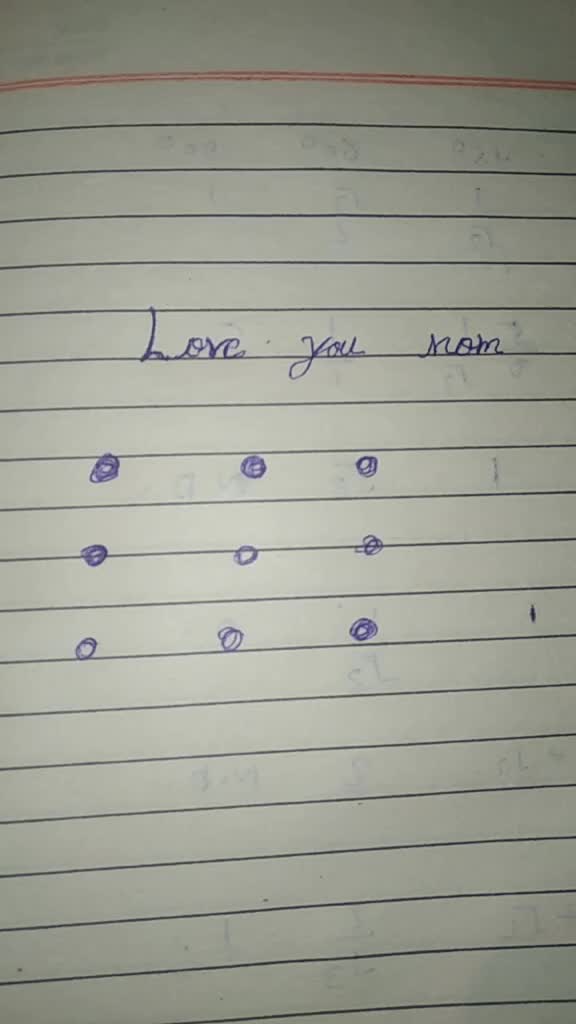 Love you mom